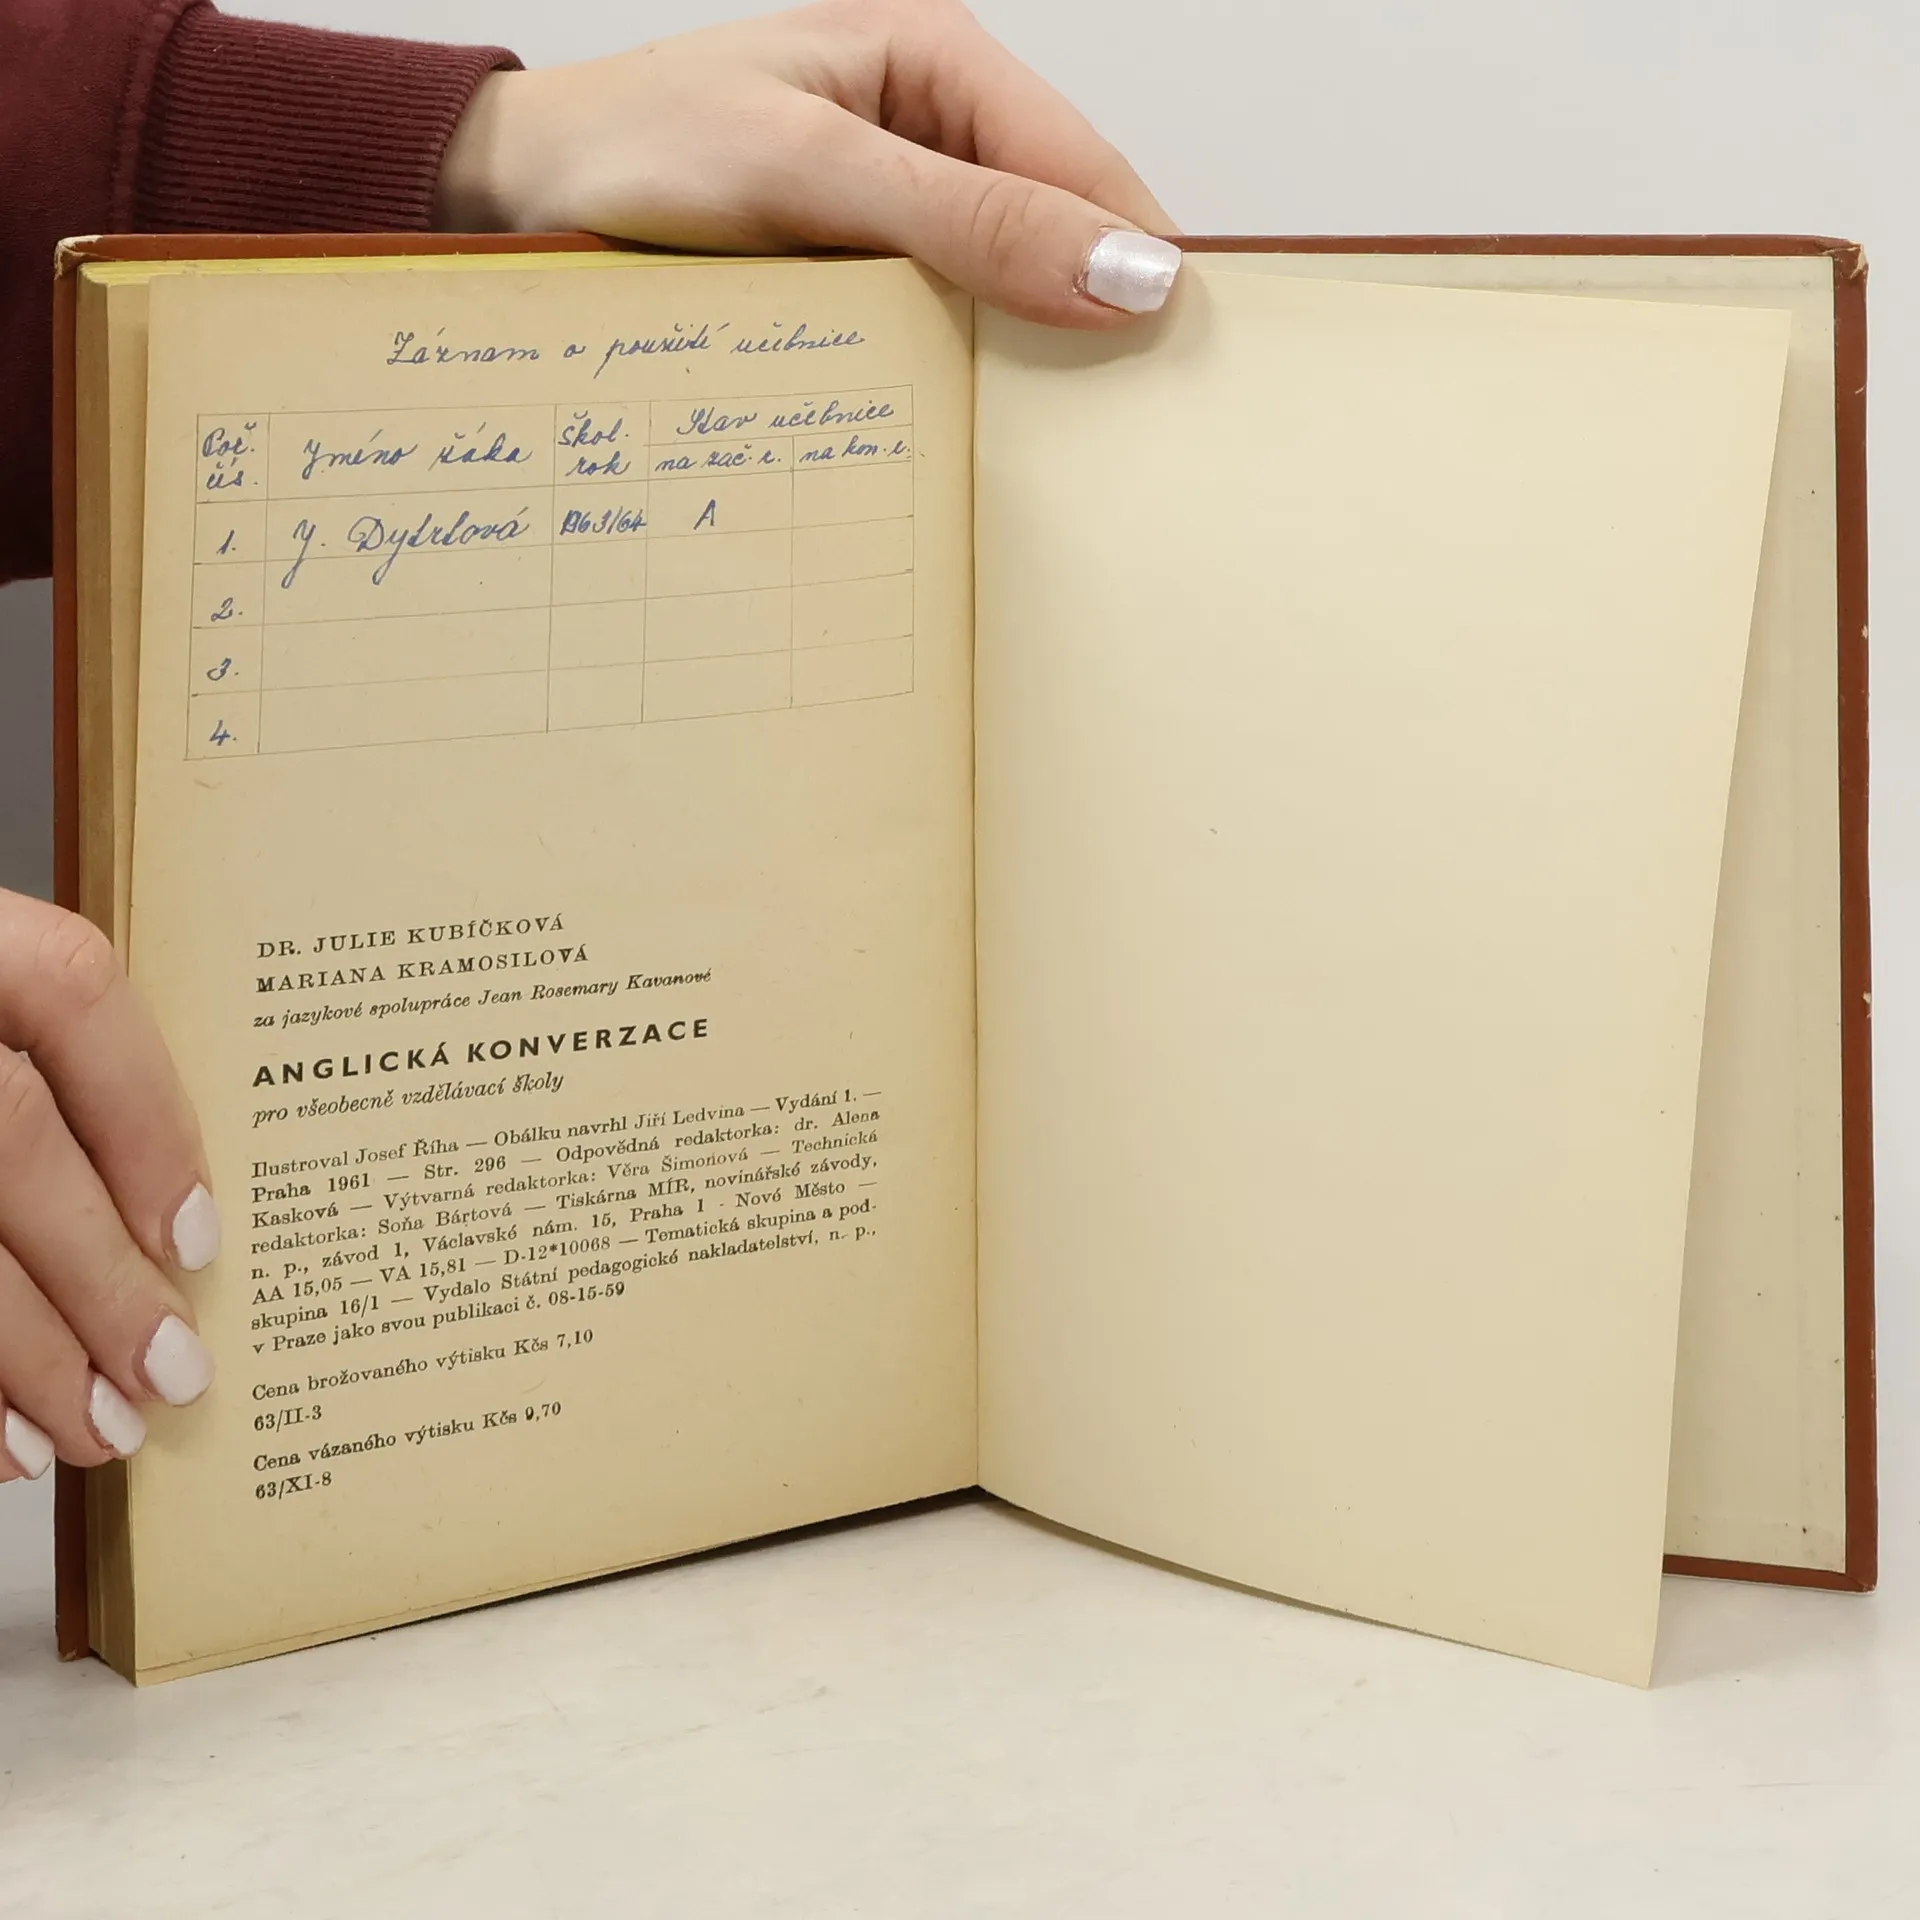 Záznam o použití učebnice
Poč. čís. Jméno žáka Škol. rok Stav učebnice
na zač. r. na kon. r.
1. J. Dytrtová 1963/64 A
2.
3.
4.
DR. JULIE KUBÍČKOVÁ
MARIANA KRAMOSILOVÁ
za jazykové spolupráce Jean Rosemary Kavanové
ANGLICKÁ KONVERZACE
pro všeobecně vzdělávací školy
Ilustroval Josef Říha — Obálku navrhl Jiří Ledvina — Vydání 1. —
Praha 1961 — Str. 296 — Odpovědná redaktorka: dr. Alena
Kasková — Výtvarná redaktorka: Věra Šimonová — Technická
redaktorka: Soňa Bártová — Tiskárna MÍR, novinářské závody,
n. p., závod 1, Václavské nám. 15, Praha 1 - Nové Město —
AA 15,05 — VA 15,81 — D-12*10068 — Tematická skupina a pod-
skupina 16/1 — Vydalo Státní pedagogické nakladatelství, n. p.,
v Praze jako svou publikaci č. 08-15-59
Cena brožovaného výtisku Kčs 7,10
63/II-3
Cena vázaného výtisku Kčs 9,70
63/XI-8